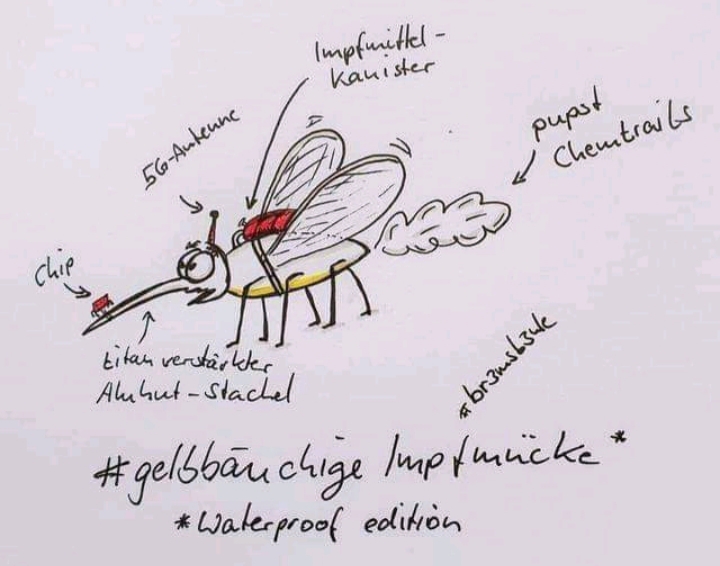 Impfmittel-
Kanister
5G-Antenne
pupst
Chemtrails
Chip
titanverstärkter
Aluhut-Stachel
#br3msb3ule
#gelbbäuchige Impfmücke*
*Waterproof edition